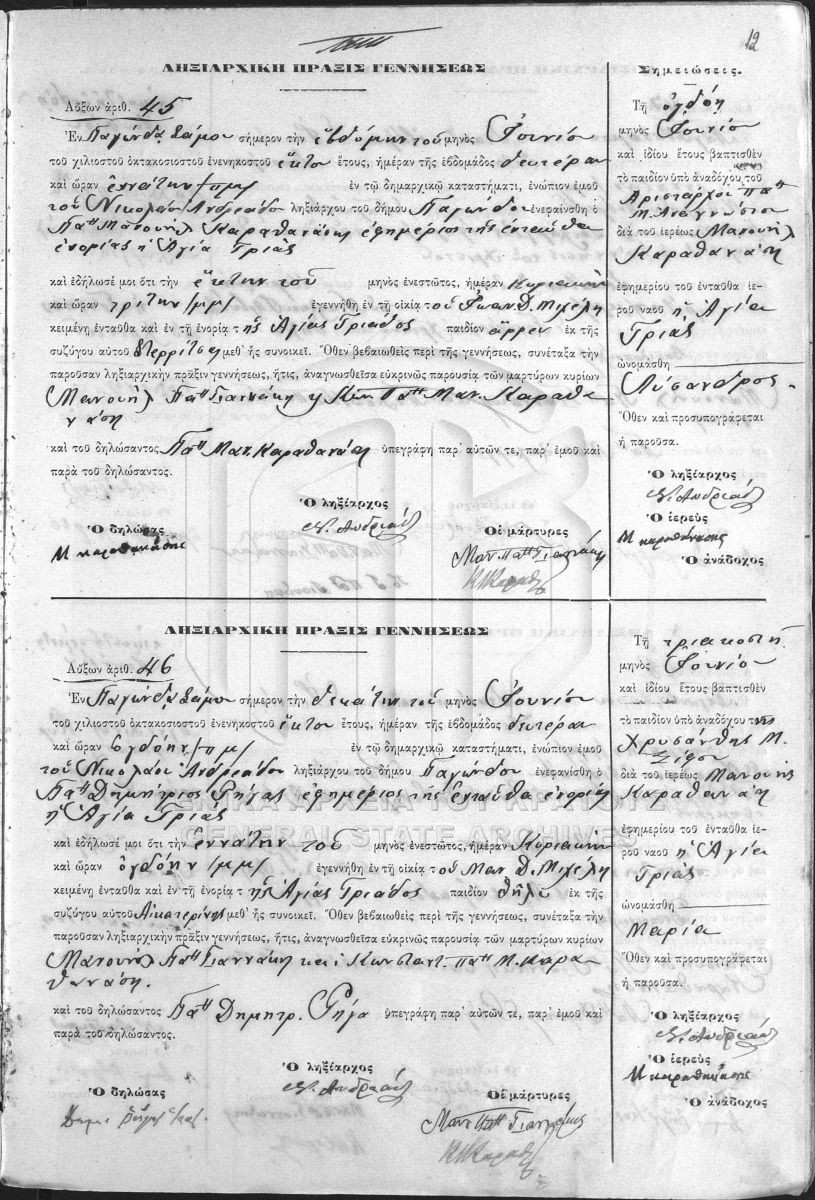 12
ΛΗΞΙΑΡΧΙΚΗ ΠΡΑΞΙΣ ΓΕΝΝΗΣΕΩΣ
Αὔξων ἀριθ. 45
Ἐν Παγώνδᾳ Σάμου σήμερον τὴν ἑβδόμην τοῦ μηνὸς Ἰουνίου
τοῦ χιλιοστοῦ ὀκτακοσιοστοῦ ἐνενηκοστοῦ ἕκτου ἔτους, ἡμέραν τῆς ἑβδομάδος Δευτέραν
καὶ ὥραν ἐννάτην πμ ἐν τῷ δημαρχικῷ καταστήματι, ἐνώπιον ἐμοῦ
τοῦ Νικολάου Ἀνδρεάδου ληξιάρχου τοῦ δήμου Παγώνδου ἐνεφανίσθη ὁ
Παπ Μανουὴλ Καραθανάσης ἐφημέριος τῆς ἐνταῦθα
ἐνορίας ἡ Ἁγία Τριὰς
καὶ ἐδήλωσέ μοι ὅτι τὴν ἕκτην τοῦ μηνὸς ἐνεστῶτος, ἡμέραν Κυριακὴν
καὶ ὥραν τρίτην μμ ἐγεννήθη ἐν τῇ οἰκίᾳ τοῦ Ἰωαν Δ. Μιχέλη
κειμένῃ ἐνταῦθα καὶ ἐν τῇ ἐνορίᾳ τῆς Ἁγίας Τριάδος παιδίον ἄρρεν ἐκ τῆς
συζύγου αὐτοῦ μεθ' ἧς συνοικεῖ. Ὅθεν βεβαιωθεὶς περὶ τῆς γεννήσεως, συνέταξα τὴν
παροῦσαν ληξιαρχικὴν πρᾶξιν γεννήσεως, ἥτις, ἀναγνωσθεῖσα εὐκρινῶς παρουσίᾳ τῶν μαρτύρων κυρίων
Μανουὴλ Παπ Γιαννάκη Κ Παπ Μαν. Καραθα
νάση
καὶ τοῦ δηλώσαντος Παπ Μαν. Καραθανάση ὑπεγράφη παρ' αὐτῶν τε, παρ' ἐμοῦ καὶ
παρὰ τοῦ δηλώσαντος.
Ὁ ληξίαρχος
Ν. Ἀνδρεάδης
Ὁ δηλώσας
Μ καραθανάσης
Οἱ μάρτυρες
Μαν Παπ Γιαννάκη
Σημειώσεις.
Τῇ ὀγδόῃ
μηνὸς Ἰουνίου
καὶ ἰδίου ἔτους βαπτισθὲν
τὸ παιδίον ὑπὸ ἀναδόχου τοῦ
Ἀριστάρχου Παπ
Μ. Ἀναγνώστου
διὰ τοῦ ἱερέως Μανουὴλ
Καραθανάση
ἐφημερίου τοῦ ἐνταῦθα ἱε-
ροῦ ναοῦ ἡ Ἁγία
Τριὰς
ὠνομάσθη
Λύσανδρος.
Ὅθεν καὶ προσυπογράφεται
ἡ παροῦσα.
Ὁ ληξίαρχος
Ν. Ἀνδρεάδης
Ὁ ἱερεὺς
Μ καραθανάσης
Ὁ ἀνάδοχος
ΛΗΞΙΑΡΧΙΚΗ ΠΡΑΞΙΣ ΓΕΝΝΗΣΕΩΣ
Αὔξων ἀριθ. 46
Ἐν Παγώνδᾳ Σάμου σήμερον τὴν δεκάτην τοῦ μηνὸς Ἰουνίου
τοῦ χιλιοστοῦ ὀκτακοσιοστοῦ ἐνενηκοστοῦ ἕκτου ἔτους, ἡμέραν τῆς ἑβδομάδος Δευτέραν
καὶ ὥραν ὀγδόην πμ ἐν τῷ δημαρχικῷ καταστήματι, ἐνώπιον ἐμοῦ
τοῦ Νικολάου Ἀνδρεάδου ληξιάρχου τοῦ δήμου Παγώνδου ἐνεφανίσθη ὁ
Παπ Δημήτριος Ρήγας ἐφημέριος τῆς ἐνταῦθα ἐνορίας
ἡ Ἁγία Τριὰς
καὶ ἐδήλωσέ μοι ὅτι τὴν ἐννάτην τοῦ μηνὸς ἐνεστῶτος, ἡμέραν Κυριακὴν
καὶ ὥραν ὀγδόην μμ ἐγεννήθη ἐν τῇ οἰκίᾳ τοῦ Μαν. Δ. Μιχέλη
κειμένῃ ἐνταῦθα καὶ ἐν τῇ ἐνορίᾳ τῆς Ἁγίας Τριάδος παιδίον θῆλυ ἐκ τῆς
συζύγου αὐτοῦ Αἰκατερίνης μεθ' ἧς συνοικεῖ. Ὅθεν βεβαιωθεὶς περὶ τῆς γεννήσεως, συνέταξα τὴν
παροῦσαν ληξιαρχικὴν πρᾶξιν γεννήσεως, ἥτις, ἀναγνωσθεῖσα εὐκρινῶς παρουσίᾳ τῶν μαρτύρων κυρίων
Μανουὴλ Παπ Γιαννάκη καὶ Κωνσταντ. Παπ Μ. Καρα
θανάση.
καὶ τοῦ δηλώσαντος Παπ Δημητρ. Ρήγα ὑπεγράφη παρ' αὐτῶν τε, παρ' ἐμοῦ καὶ
παρὰ τοῦ δηλώσαντος.
Ὁ ληξίαρχος
Ν. Ἀνδρεάδης
Ὁ δηλώσας
Οἱ μάρτυρες
Μαν Παπ Γιαννάκης
Τῇ τριακοστῇ
μηνὸς Ἰουνίου
καὶ ἰδίου ἔτους βαπτισθὲν
τὸ παιδίον ὑπὸ ἀναδόχου τῆς
Χρυσάνθης Μ.
διὰ τοῦ ἱερέως Μανουὴλ
Καραθανάση
ἐφημερίου τοῦ ἐνταῦθα ἱε-
ροῦ ναοῦ ἡ Ἁγία
Τριὰς
ὠνομάσθη
Μαρία
Ὅθεν καὶ προσυπογράφεται
ἡ παροῦσα.
Ὁ ληξίαρχος
Ν. Ἀνδρεάδης
Ὁ ἱερεὺς
Μ καραθανάσης
Ὁ ἀνάδοχος
ΓΕΝΙΚΑ ΑΡΧΕΙΑ ΤΟΥ ΚΡΑΤΟΥΣ
GENERAL STATE ARCHIVES